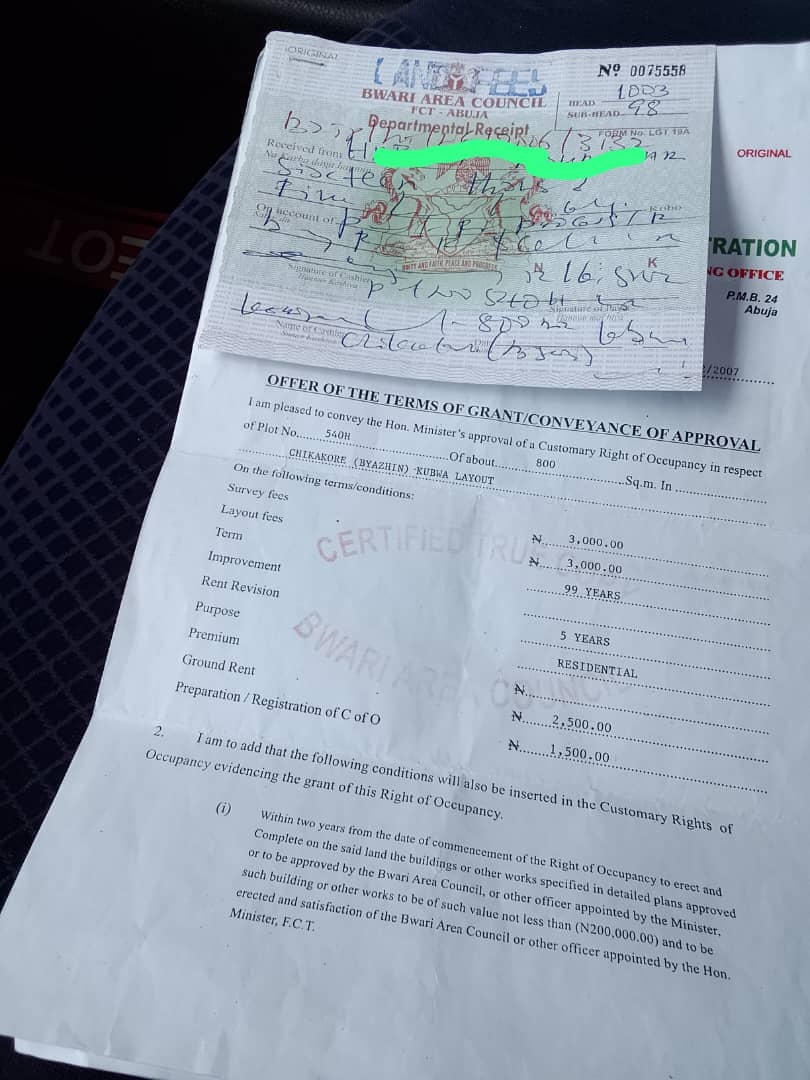 ORIGINAL
LAND FEES
Nº 0075558
BWARI AREA COUNCIL
FCT - ABUJA
HEAD 1003
SUB-HEAD 98
Departmental Receipt
FORM No. LGT 19A
Received from
Sixteen
Five
Kobo
On account of
N K
Signature of Cashier
Plot No 540H
Signature of Payer
800 m2
Name of Cashier
ORIGINAL
RATION
NG OFFICE
P.M.B. 24
Abuja
/2007
OFFER OF THE TERMS OF GRANT/CONVEYANCE OF APPROVAL
I am pleased to convey the Hon. Minister's approval of a Customary Right of Occupancy in respect
of Plot No. 540H Of about 800 Sq.m. In
CHIKAKORE (BYAZHIN) KUBWA LAYOUT
On the following terms/conditions:
Survey fees N 3,000.00
Layout fees N 3,000.00
Term 99 YEARS
Improvement
Rent Revision 5 YEARS
Purpose RESIDENTIAL
Premium N
Ground Rent N 2,500.00
Preparation / Registration of C of O N 1,500.00
CERTIFIED TRUE
BWARI AREA COUNCIL
2. I am to add that the following conditions will also be inserted in the Customary Rights of
Occupancy evidencing the grant of this Right of Occupancy.
(i) Within two years from the date of commencement of the Right of Occupancy to erect and
Complete on the said land the buildings or other works specified in detailed plans approved
or to be approved by the Bwari Area Council, or other officer appointed by the Minister,
such building or other works to be of such value not less than (N200,000.00) and to be
erected and satisfaction of the Bwari Area Council or other officer appointed by the Hon.
Minister, F.C.T.